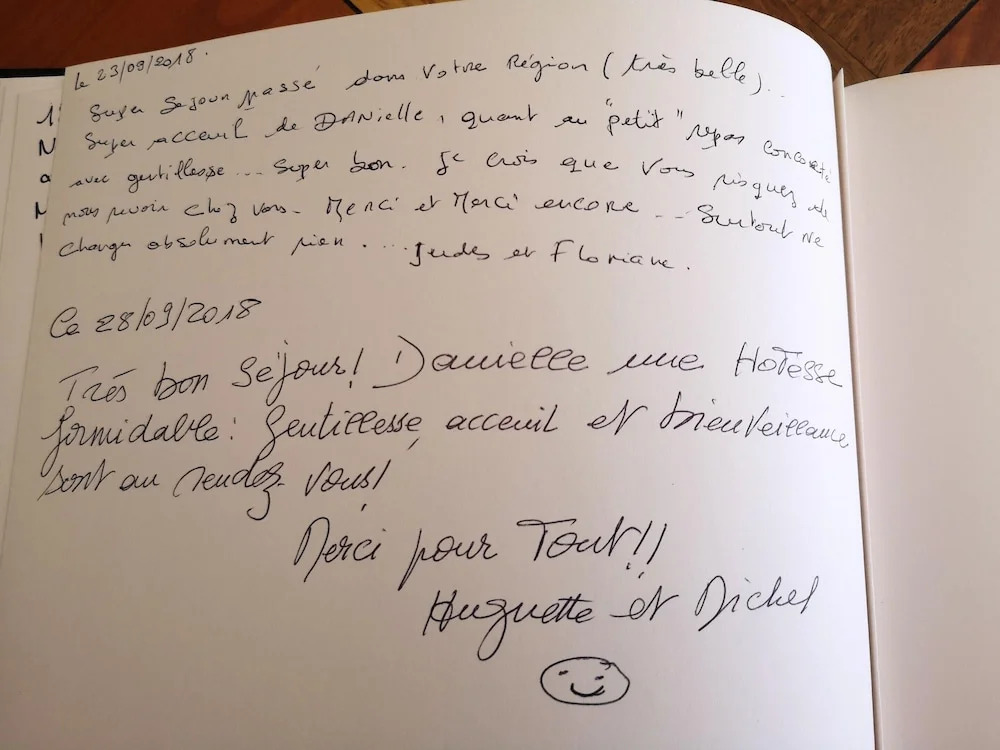 le 23/09/2018.
Super Sejour passé dans Votre Région (très belle)...
Super acceuil de DANielle, quant au "petit" repas concocté
avec gentillesse... Super bon. Je crois que Vous risquez de
nous revoir chez vous. Merci et Merci encore... Surtout Ne
changer absolument rien.... et Floriane.
Le 28/09/2018
Très bon Séjour! Danielle une Hotesse
formidable: Gentillesse, acceuil et bienveillance
sont au rendez vous!
Merci pour Tout!!
Huguette et Michel
1
N
a